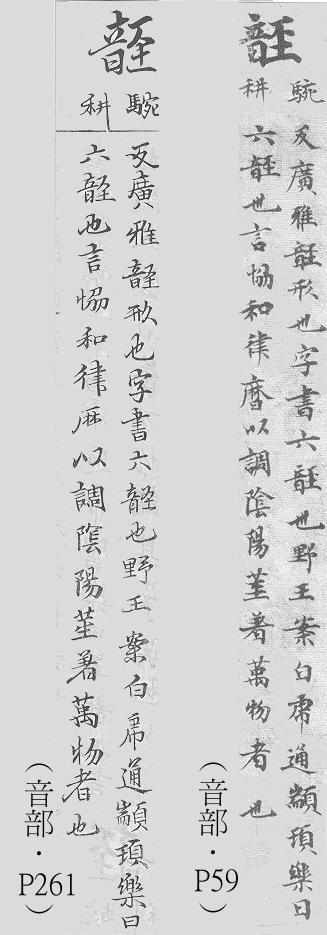 䪫
䮍
耕
反廣雅䪫形也字書六䪫也野王案白虎通顓頊樂曰
六䪫也言恊和律曆以調陰陽莖著萬物者也
(音部・P59)
䪫
䮍
耕
反廣雅䪫形也字書六䪫也野王案白虎通顓頊樂曰
六䪫也言恊和律歴以調陰陽莖著萬物者也
(音部・P261)